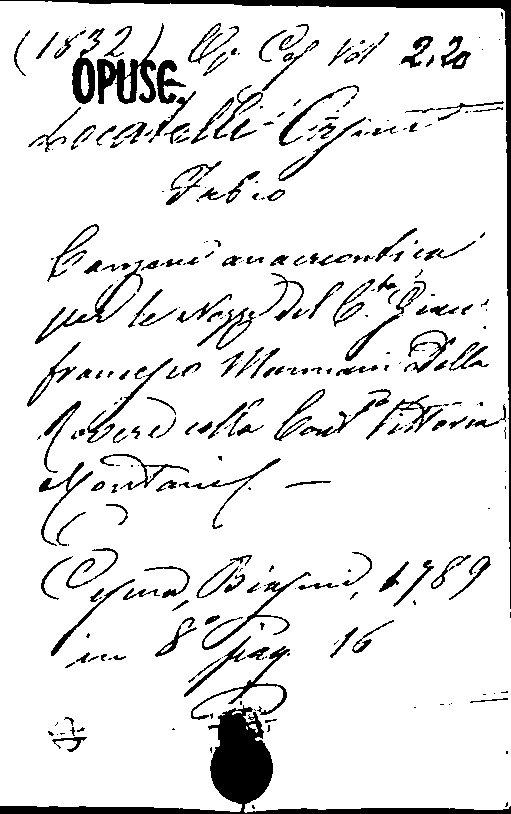 (1832) Op. Ces Vol 2.20
OPUSC.
Locatelli Cesina
Fabio
Canzone anacreontica
per le Nozze del C.te Gian-
francesco Mamiani Della
Rovere colla Cont.a Vittoria
Montani. —
Cesena, Biasini, 1789
in 8° pag 16